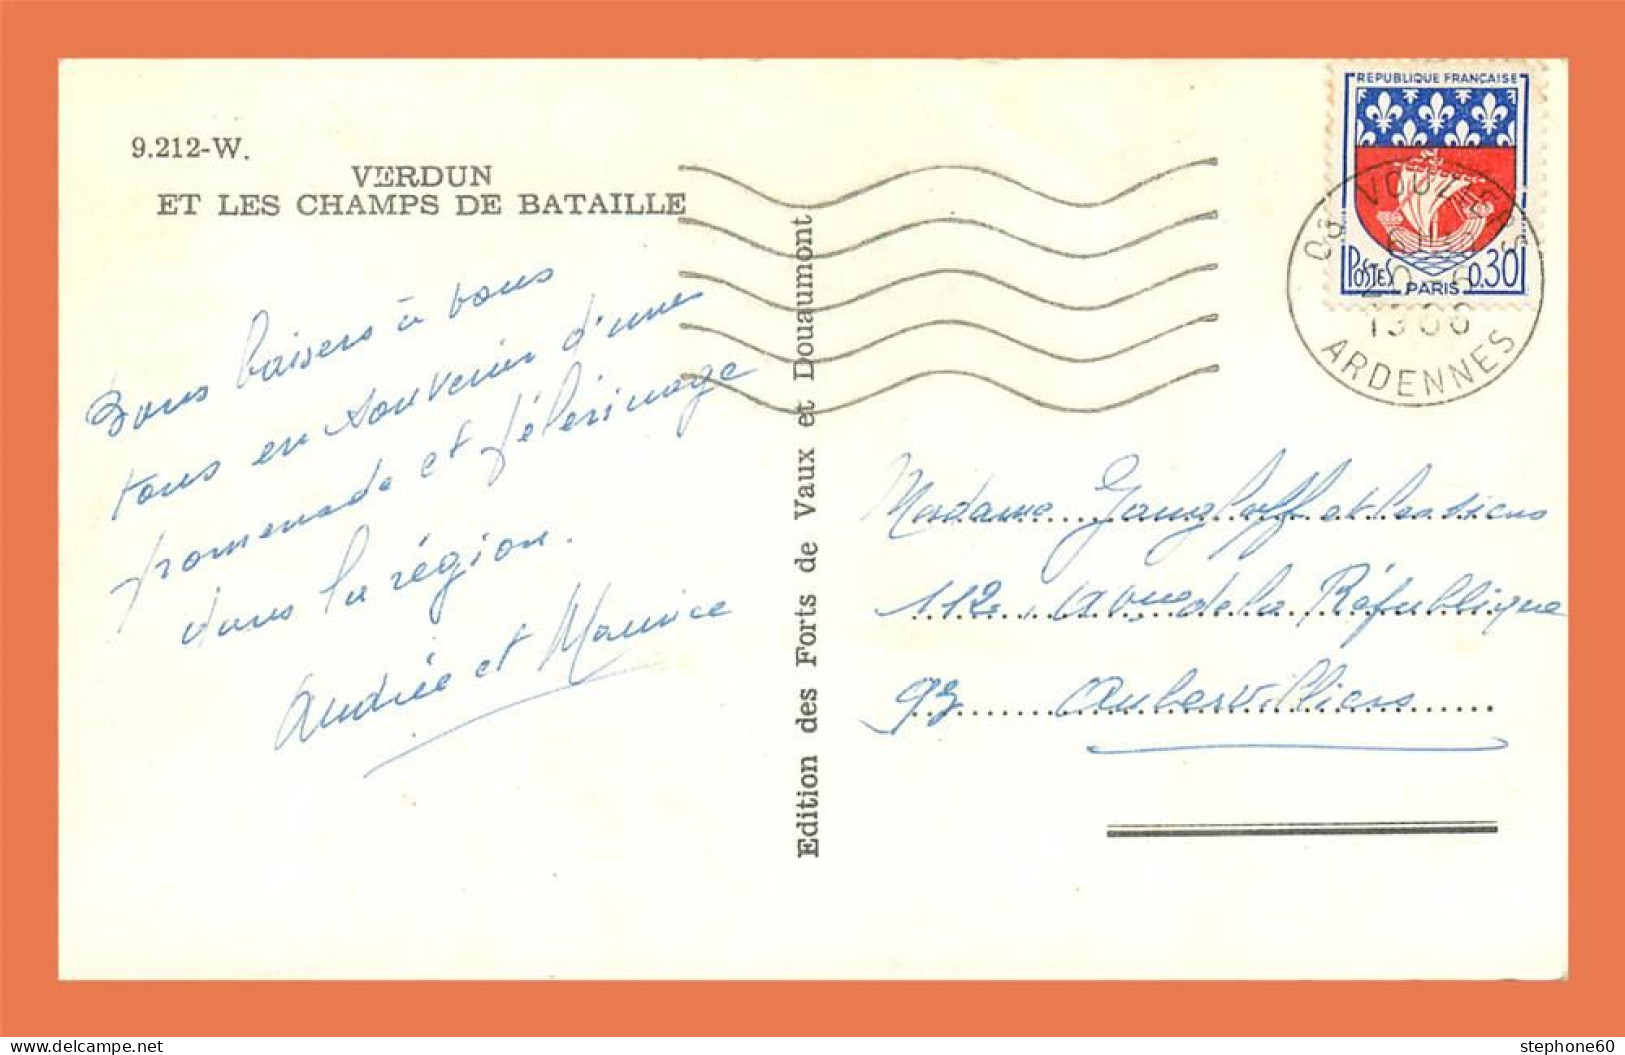 9.212-W.
VERDUN
ET LES CHAMPS DE BATAILLE
Bons baisers à vous
tous en souvenir d'une
promenade et pélerinage
dans la région.
Andrée et Maurice
Edition des Forts de Vaux et Douaumont
REPUBLIQUE FRANÇAISE
POSTES 0,30
PARIS
08 VOUZIERS
1966
ARDENNES
Madame Gangloff et les siens
112, Avenue de la République
93 Aubervilliers
www.delcampe.net
stephone60